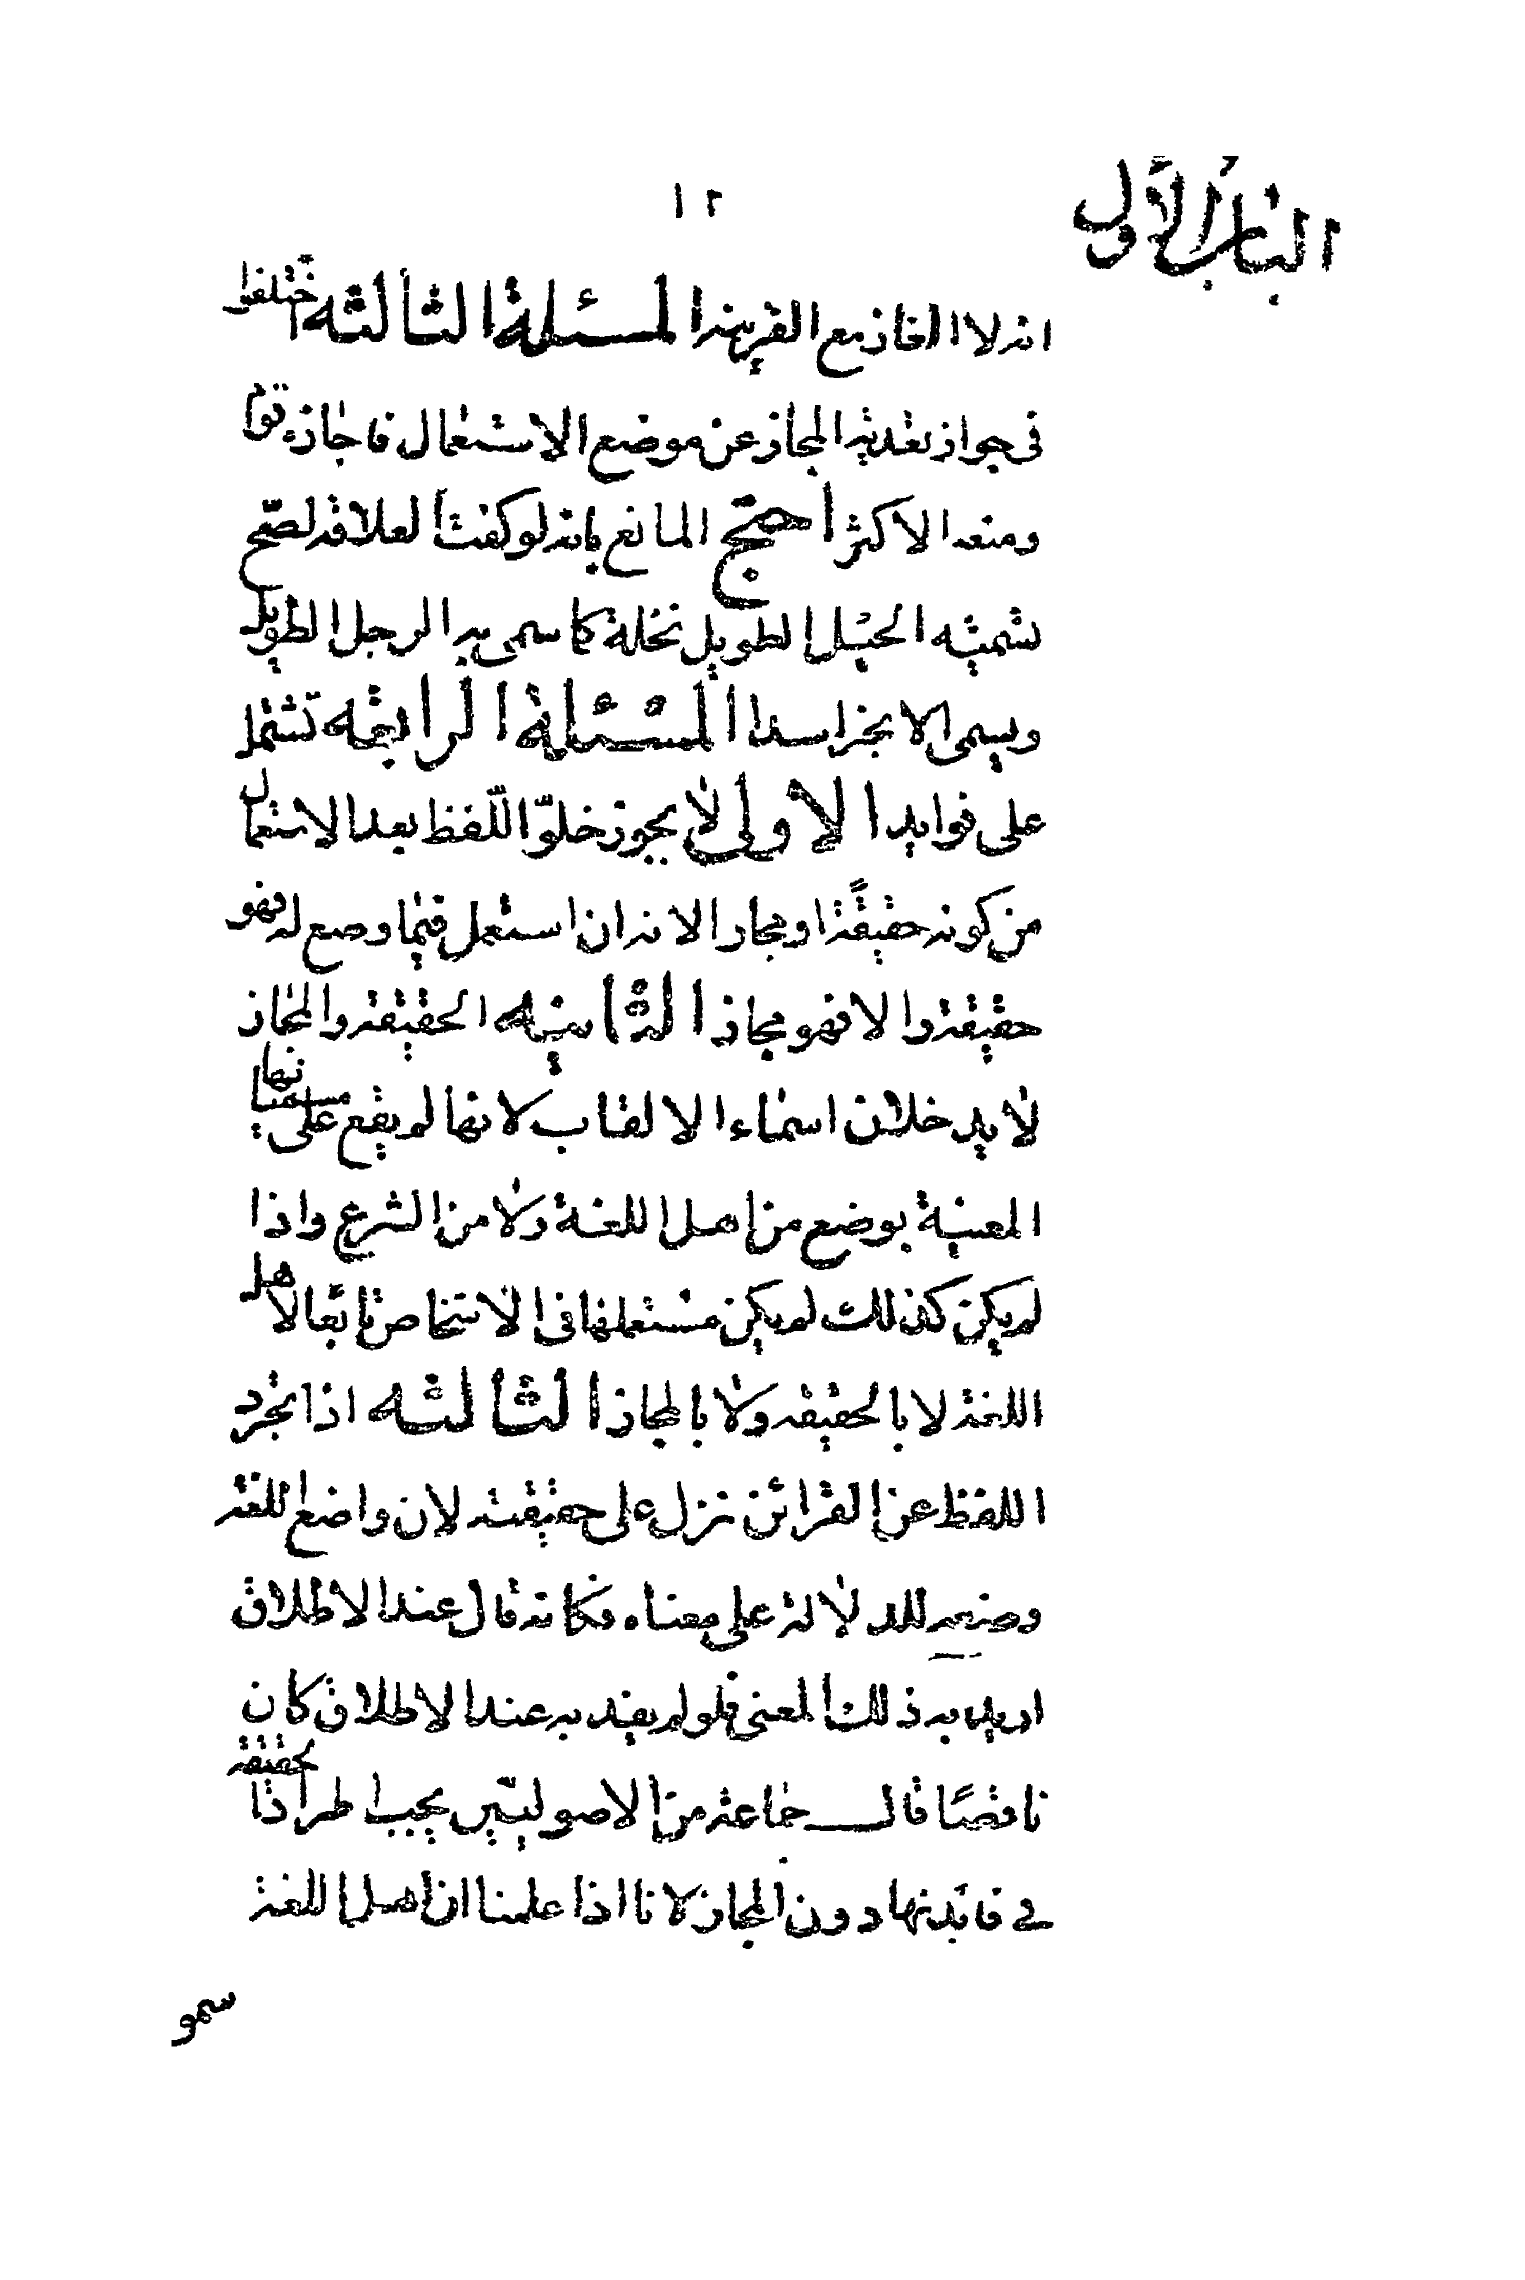 الباب الأول
١٢
انه لا الغاز مع القرينة المسئلة الثالثة اختلفوا
فى جواز تعدية المجاز عن موضع الاستعمال فاجازه قوم
ومنعه الاكثر احتج المانع بانه لو كفت العلاقة لصح
تسمية الحبل الطويل نخلة كما سمى به الرجل الطويل
ويسمى الابخر اسدا المسئلة الرابعة تشتمل
على فوايد الاولى لا يجوز خلوّ اللّفظ بعد الاستعمال
من كونه حقيقةً او مجازا لانه ان استعمل فيما وضع له فهو
حقيقة والا فهو مجاز الثانية الحقيقة والمجاز
لا يدخلان اسماء الالقاب لانها لم يقع على مسمياتها
المعينة بوضع من اهل اللغة ولا من الشرع واذا
لم يكن كذلك لم يكن مستعملها فى الاشخاص تابعا لاهل
اللغة لا بالحقيقة ولا بالمجاز الثالثة اذا تجرد
اللفظ عن القرائن نزل على حقيقته لان واضع اللغة
وضعه للدلالة على معناه فكانه قال عند الاطلاق
اريد به ذلك المعنى فلو لم يفد به عند الاطلاق كان
ناقصًا قال جماعة من الاصوليّين يجب اطراد الحقيقة
في فائدتها دون المجاز لانا اذا علمنا ان اهل اللغة
سموا